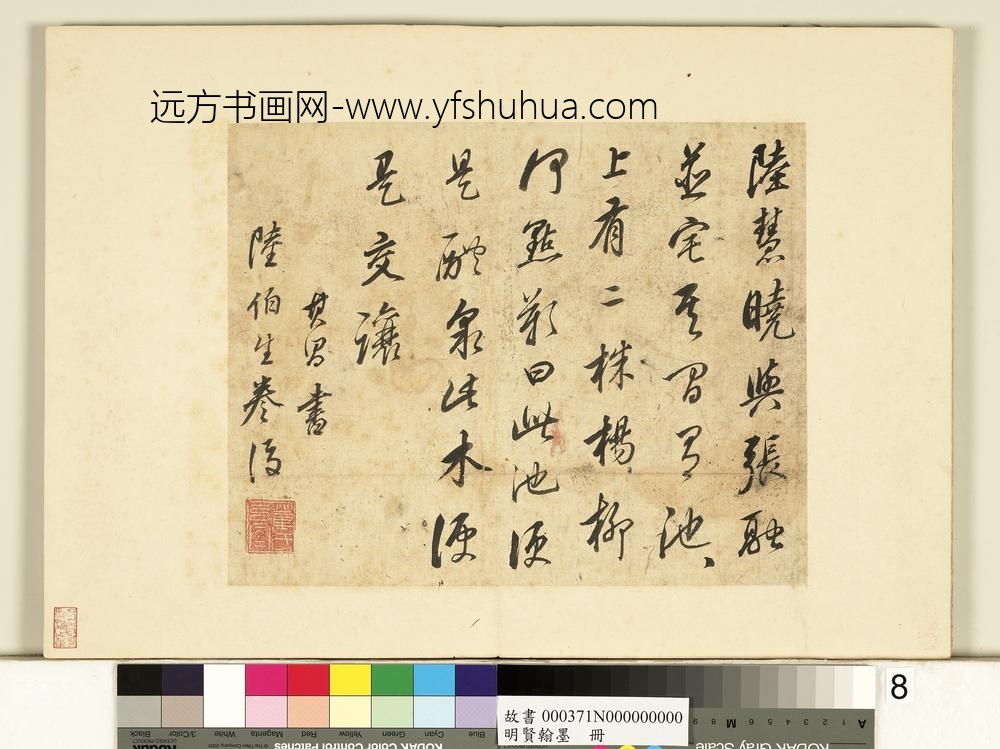 远方书画网-www.yfshuhua.com
陸慧曉與張融
並宅其間有池
上有二株楊柳
何點歎曰此池便
是醴泉此木便
是交讓
其昌書
陸伯生卷後
8
故書 000371N000000000
明賢翰墨 冊
Black
3/Color
White
Magenta
Red
Yellow
Green
Cyan
Blue
Kodak
KODAK Color Control Patches
KODAK Gray Scale
A 1 2 3 4 5 6 M 8 9